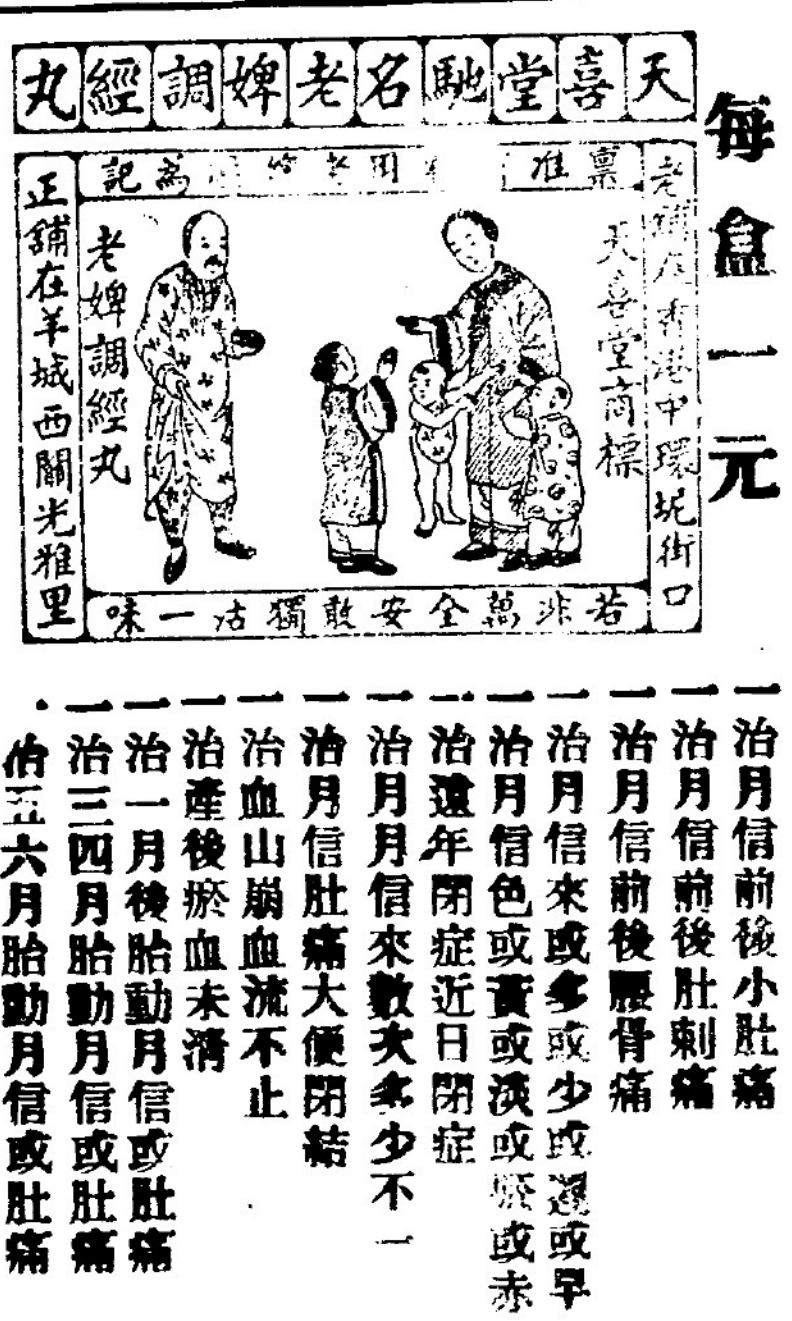 天喜堂馳名老婢調經丸
每盒一元
稟准 用老 為記
老鋪在香港中環坭街口
天喜堂商標
老婢調經丸
正鋪在羊城西關光雅里
若非萬全安敢獨沽一味
一治月信前後小肚痛
一治月信前後肚刺痛
一治月信前後腰骨痛
一治月信來或多或少或遲或早
一治月信色或黃或淡或瘀或赤
一治遠年閉症近日閉症
一治月月信來數次多少不一
一治月信肚痛大便閉結
一治血山崩血流不止
一治產後瘀血未清
一治一月後胎動月信或肚痛
一治三四月胎動月信或肚痛
治五六月胎動月信或肚痛